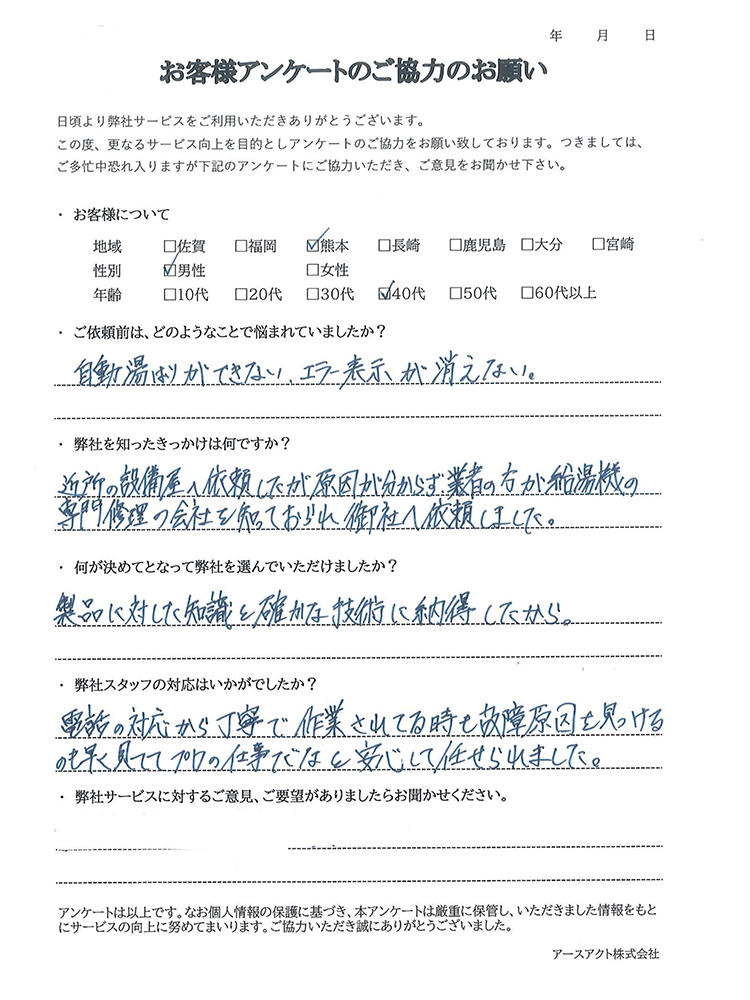 年　月　日
お客様アンケートのご協力のお願い
日頃より弊社サービスをご利用いただきありがとうございます。
この度、更なるサービス向上を目的としアンケートのご協力をお願い致しております。つきましては、
ご多忙中恐れ入りますが下記のアンケートにご協力いただき、ご意見をお聞かせ下さい。
・ お客様について
地域 □佐賀 □福岡 ☑熊本 □長崎 □鹿児島 □大分 □宮崎
性別 ☑男性 □女性
年齢 □10代 □20代 □30代 ☑40代 □50代 □60代以上
・ ご依頼前は、どのようなことで悩まれていましたか？
自動湯はりができない、エラー表示が消えない。
・ 弊社を知ったきっかけは何ですか？
近所の設備屋へ依頼したが原因が分からず業者の方が給湯機の
専門修理の会社を知っておられ御社へ依頼しました。
・ 何が決めてとなって弊社を選んでいただけましたか？
製品に対した知識と確かな技術に納得したから。
・ 弊社スタッフの対応はいかがでしたか？
電話の対応から丁寧で作業されてる時も故障原因を見つける
のも早く見ててプロの仕事だなと安心して任せられました。
・ 弊社サービスに対するご意見、ご要望がありましたらお聞かせください。
アンケートは以上です。なお個人情報の保護に基づき、本アンケートは厳重に保管し、いただきました情報をもと
にサービスの向上に努めてまいります。ご協力いただき誠にありがとうございました。
アースアクト株式会社